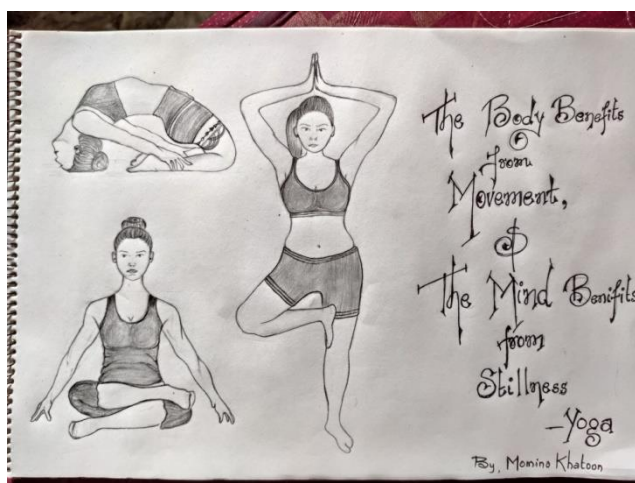 The Body Benefits
from
Movement,
&
The Mind Benifits
from
Stillness
-Yoga
By, Momina Khatoon